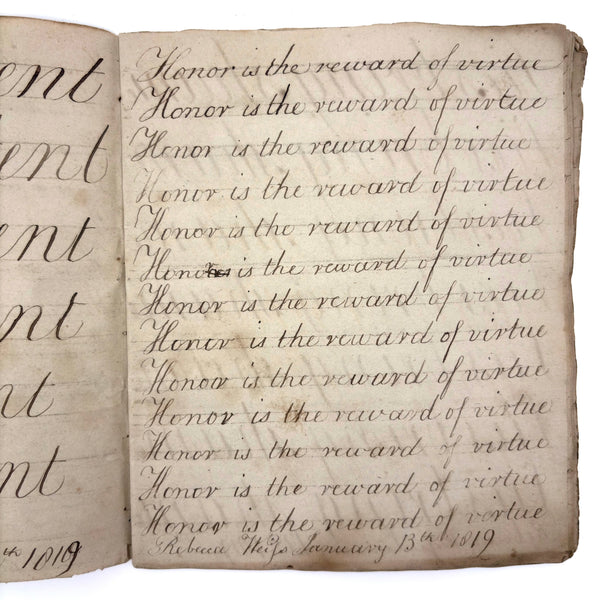 ent
ent
ent
nt
nt
nt
th 1819
Honor is the reward of virtue
Honor is the reward of virtue
Honor is the reward of virtue
Honor is the reward of virtue
Honor is the reward of virtue
Honor is the reward of virtue
Honor is the reward of virtue
Honor is the reward of virtue
Honor is the reward of virtue
Honor is the reward of virtue
Honor is the reward of virtue
Honor is the reward of virtue
Honor is the reward of virtue
Rebecca Weiſs January 13th 1819